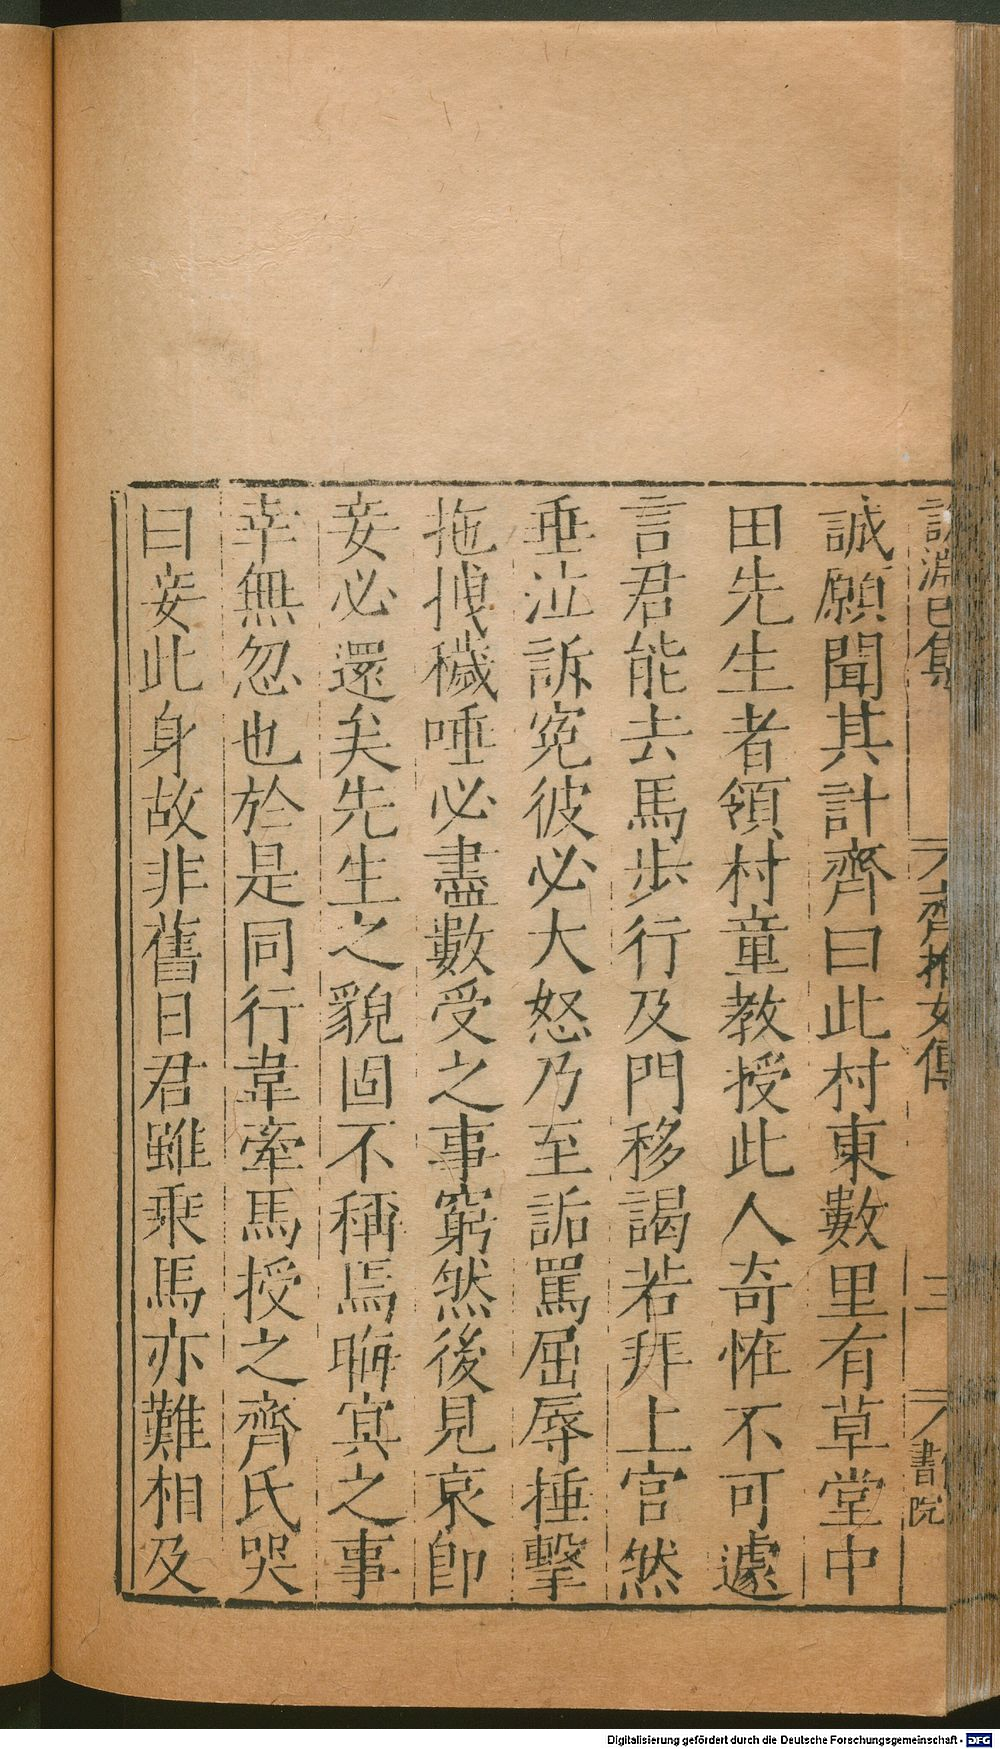 說淵己集 齊推女傳 三 書院
誠願聞其計齊曰此村東數里有草堂中
田先生者領村童教授此人奇恠不可遽
言君能去馬步行及門移謁若拜上官然
垂泣訴寃彼必大怒乃至詬罵屈辱捶擊
拖拽穢唾必盡數受之事窮然後見哀卽
妾必還矣先生之貌固不稱焉晦㝠之事
幸無忽也於是同行韋牽馬授之齊氏哭
曰妾此身故非舊日君雖乘馬亦難相及
Digitalisierung gefördert durch die Deutsche Forschungsgemeinschaft - DFG